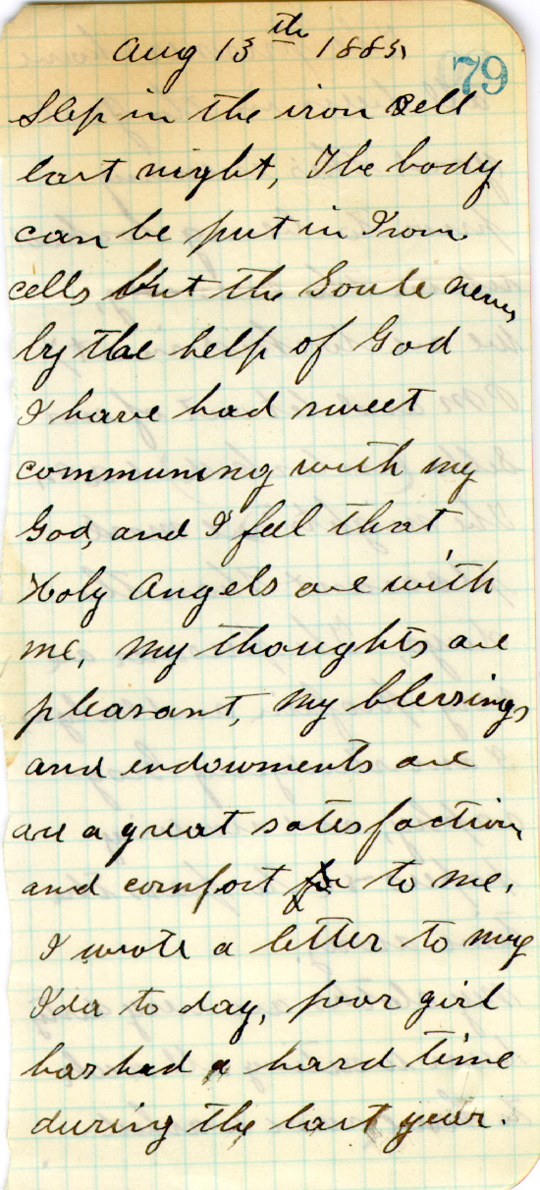 Aug 13th 1885
79
Slep in the iron Cell
last night, The body
can be put in Iron
cells but the Soule never
by the help of God
I have had sweet
communing with my
God, and I feel that
Holy Angels are with
me, my thoughts are
pleasant, my blessings
and endowments are
are a great satesfaction
and comfort to me.
I wrote a letter to my
Ida to day, poor girl
has had a hard time
during the last year.